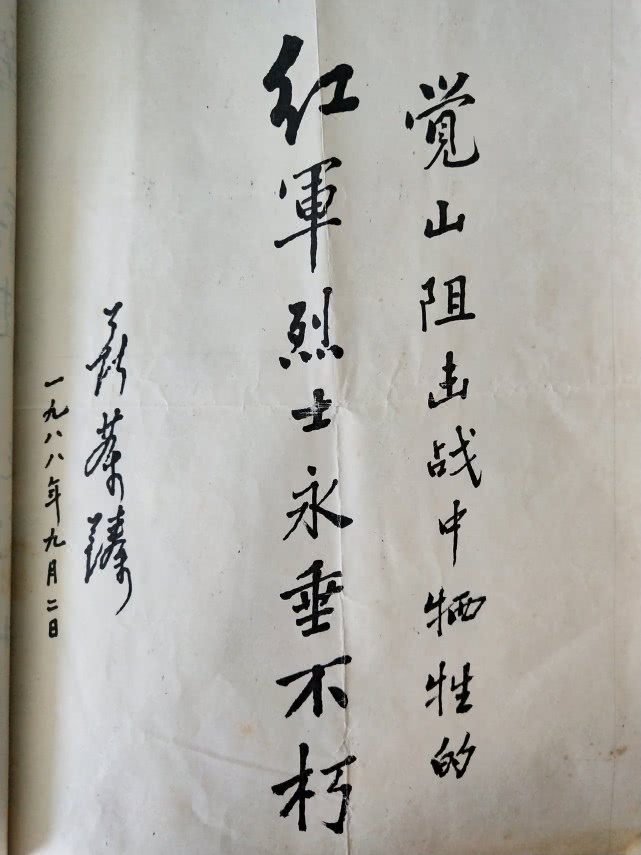 觉山阻击战中牺牲的
红軍烈士永垂不朽
聂荣臻
一九八八年九月二日